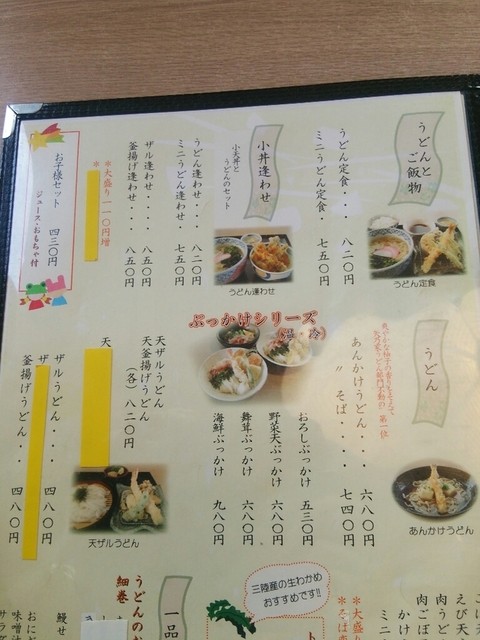 うどんと
ご飯物
うどん定食・・・ 八二〇円
ミニうどん定食・ 七五〇円
うどん定食
小丼逢わせ
小天丼と
うどんのセット
うどん逢わせ・・ 八二〇円
ミニうどん逢わせ・ 七五〇円
うどん逢わせ
ザル逢わせ・・・・ 八五〇円
釜揚げ逢わせ・・ 八五〇円
*大盛り一一〇円増
お子様セット 四三〇円
ジュース・おもちゃ付
うどん
第一位
あんかけうどん・・ 六八〇円
〃 そば・・・・ 七四〇円
あんかけうどん
ぶっかけシリーズ
(温・冷)
おろしぶっかけ 五三〇円
野菜天ぶっかけ 六八〇円
舞茸ぶっかけ 六八〇円
海鮮ぶっかけ 九八〇円
天ザルうどん
天釜揚げうどん
(各) 八二〇円
天
天ザルうどん
ザルうどん・・・ 四八〇円
ザ
釜揚げうどん・・ 四八〇円
えび天
肉うどん
肉ごぼ
かけ
ミニ
*大盛
*そば
三陸産の生わかめ
おすすめです!!
一品
うどんのお
細巻
鰻せ
おにぎ
味噌汁
サラダ